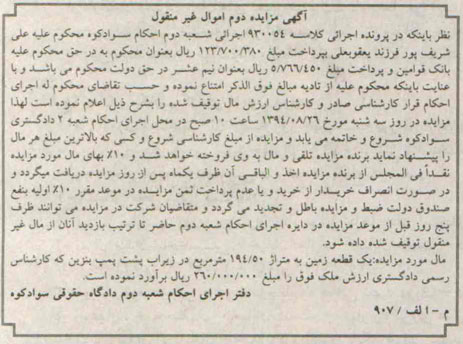 آگهی مزایده دوم اموال غیر منقول
نظر باینکه در پرونده اجرائی کلاسه ۹۳۰۰۵۴ اجرائی شعبه دوم احکام سوادکوه محکوم علیه علی
شریف پور فرزند یعقوبعلی بپرداخت مبلغ ۱۲۳/۷۰۰/۳۸۰ ریال بعنوان محکوم به در حق محکوم علیه
بانک قوامین و پرداخت مبلغ ۵/۷۶۶/۴۵۰ ریال بعنوان نیم عشر در حق دولت محکوم می باشد و با
عنایت باینکه محکوم علیه از تادیه مبالغ فوق الذکر امتناع نموده و حسب تقاضای محکوم له اجرای
احکام قرار کارشناسی صادر و کارشناس ارزش مال توقیف شده را بشرح ذیل اعلام نموده است لهذا
مزایده در روز سه شنبه مورخ ۱۳۹۴/۰۸/۲۶ ساعت ۱۰ صبح در محل اجرای احکام شعبه ۲ دادگستری
سوادکوه شروع و خاتمه می یابد و مزایده از مبلغ کارشناسی شروع و کسی که بالاترین مبلغ هر مال
را پیشنهاد نماید برنده مزایده تلقی و مال به وی فروخته خواهد شد و ۱۰٪ بهای مال مورد مزایده
نقداً فی المجلس از برنده مزایده اخذ و الباقی آن ظرف یکماه پس از روز مزایده دریافت میگردد و
در صورت انصراف خریدار از خرید و یا عدم پرداخت ثمن مزایده در موعد مقرر ۱۰٪ اولیه بنفع
صندوق دولت ضبط و مزایده باطل و تجدید می گردد و متقاضیان شرکت در مزایده می توانند ظرف
پنج روز قبل از موعد مزایده در دایره اجرای احکام شعبه دوم حاضر تا ترتیب بازدید آنان از مال غیر
منقول توقیف شده داده شود.
مال مورد مزایده:یک قطعه زمین به متراژ ۱۹۴/۵۰ مترمربع در زیراب پشت پمپ بنزین که کارشناس
رسمی دادگستری ارزش ملک فوق را مبلغ ۲۶۰/۰۰۰/۰۰۰ ریال برآورد نموده است.
دفتر اجرای احکام شعبه دوم دادگاه حقوقی سوادکوه
م - الف / ۹۰۷